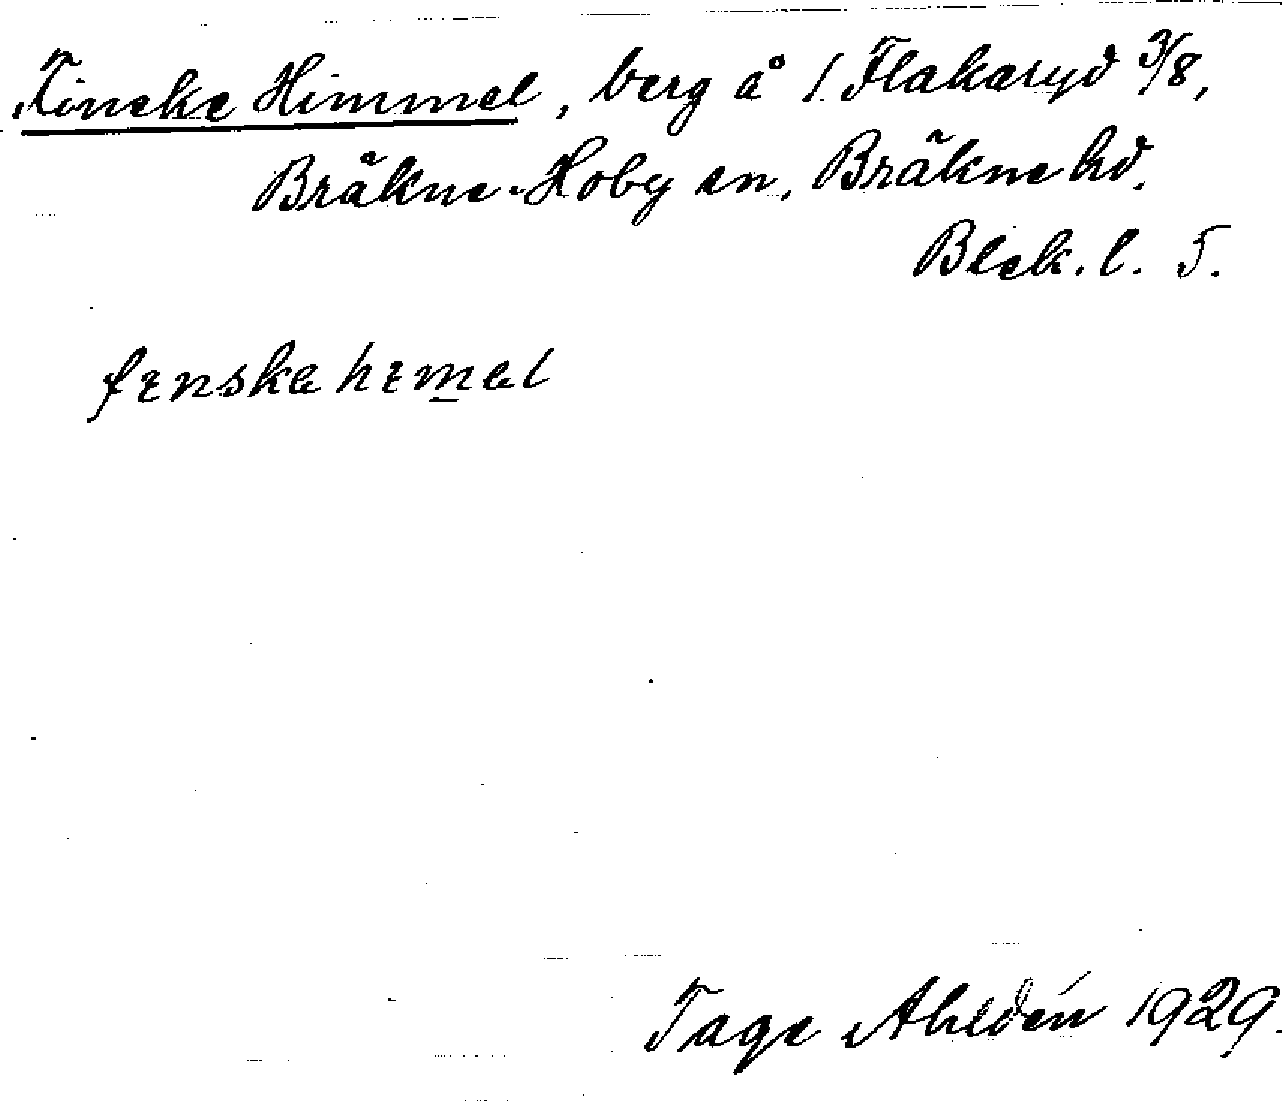 Finska Himmel, berg å 1 Flakaryd 3/8,
Bräkne-Hoby sn, Bräkne hd.
Blek. l. 5.
fɪnska hɪmel
Tage Ahldén 1929.